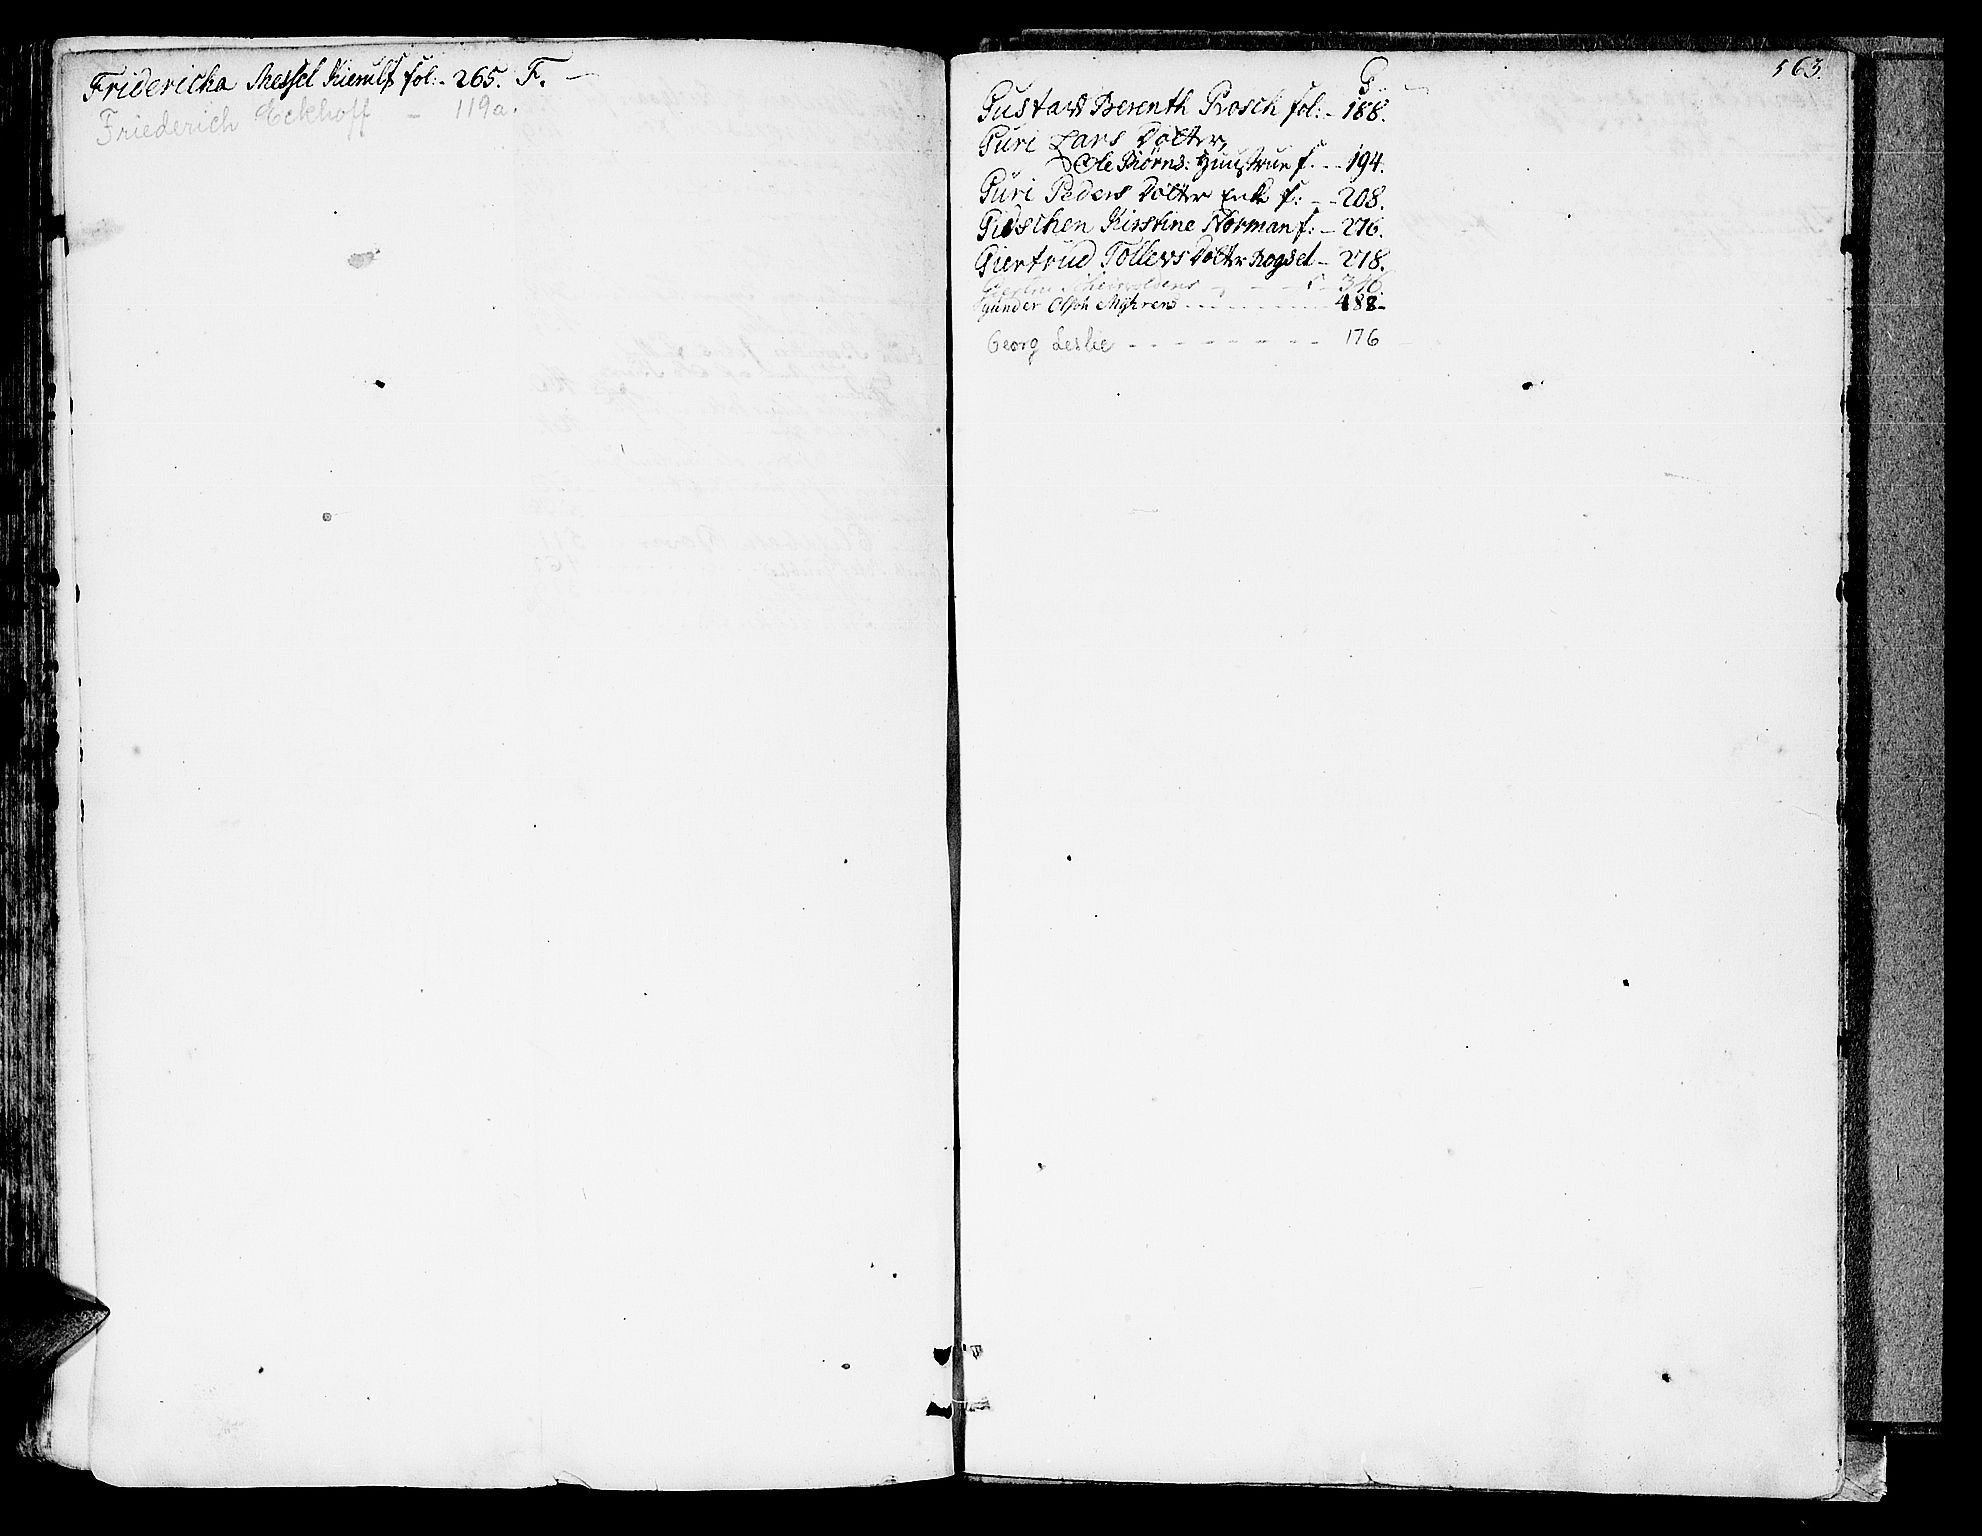 Fridericha Messel Kierulf fol:- 265. F.
Friederich Eckhoff - 119a.
563.
G
Gustavs Berenth Rosch fol:- 188.
Guri Lars Dotter,
Ole Biørns: Huustrue f. - - 194.
Guri Peders Dotter Enke f: - - 208.
Gidschen Kirstine Norman f: - 276.
Giertrud Tollevs Dotter Rogset - 278.
316.
Gunder Olsøn Myhrens - - - - - 488-
Georg Leslie - - - - - - - - - 176